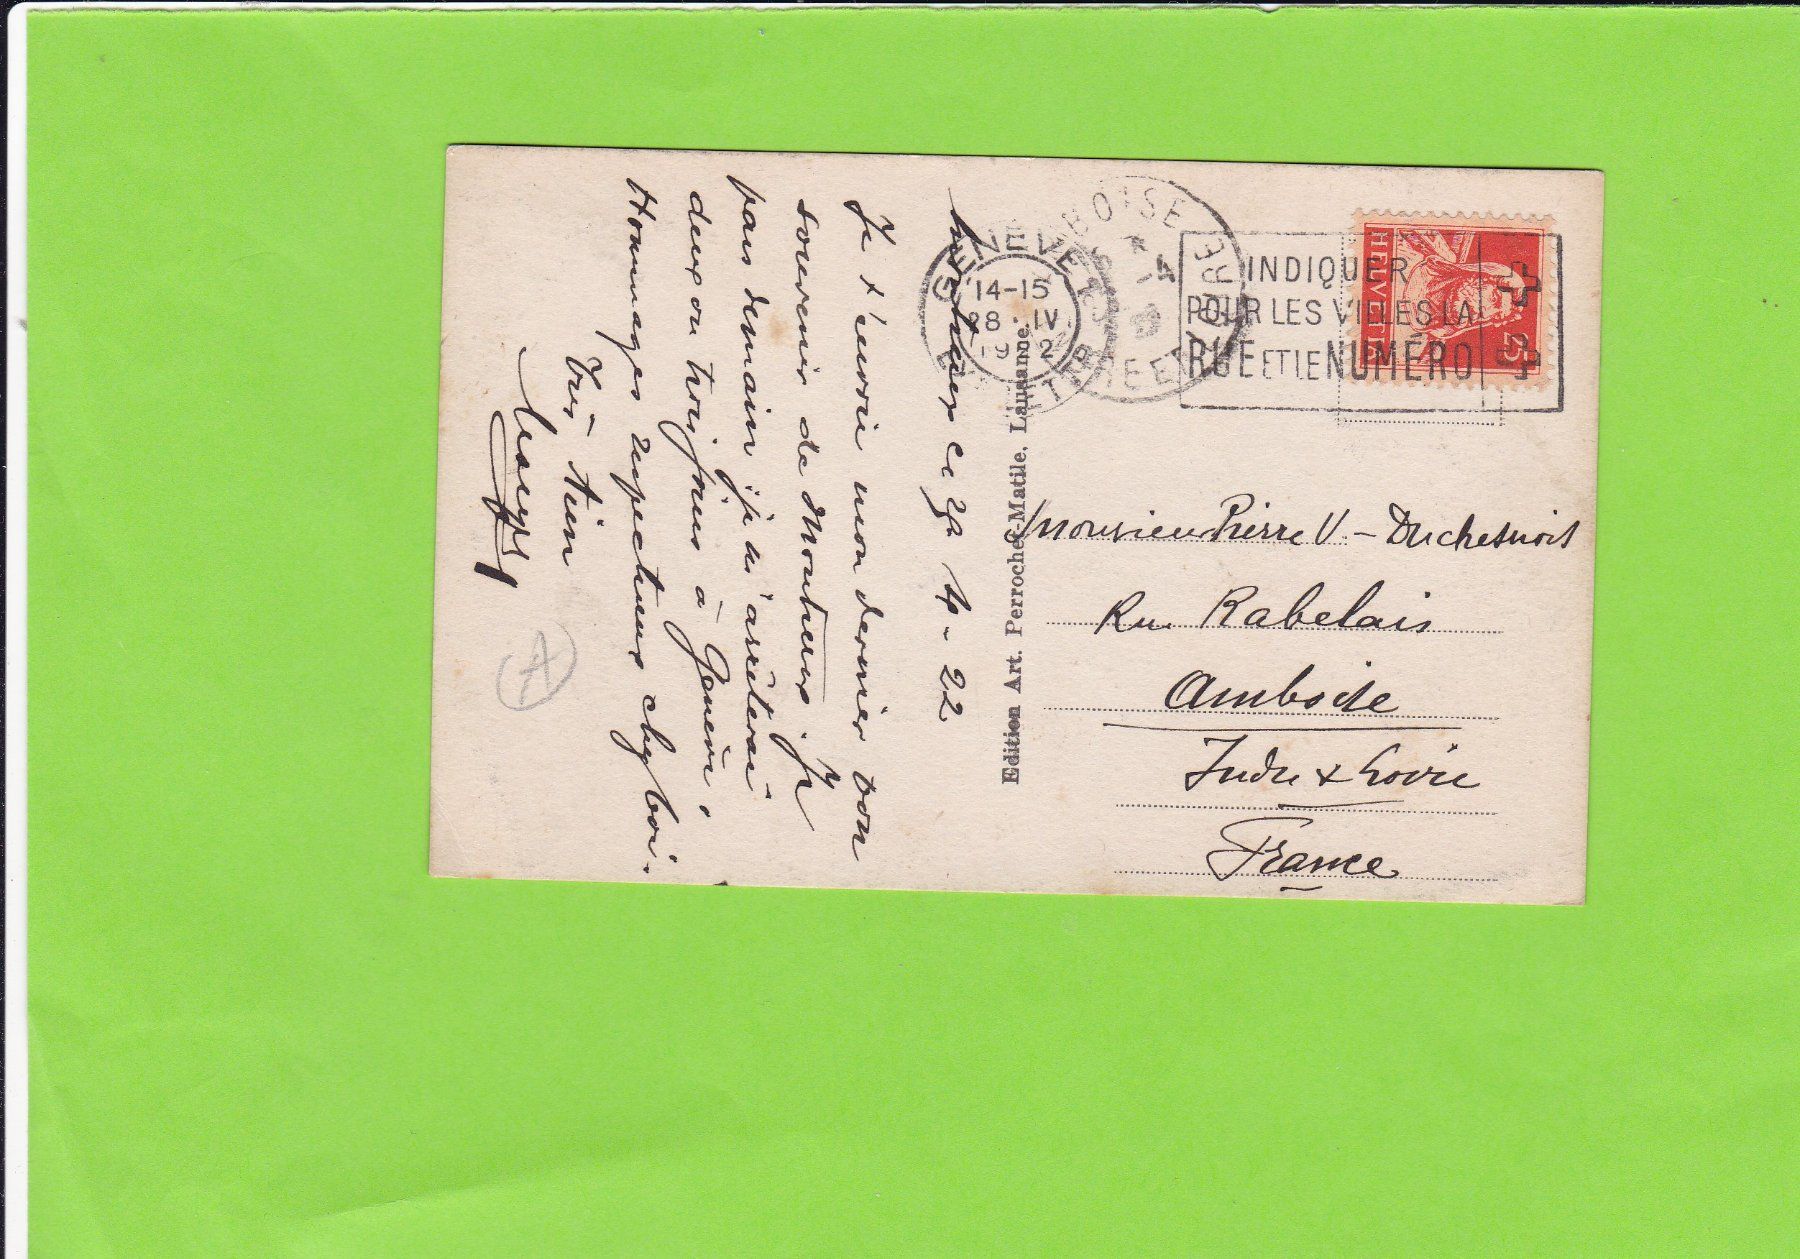 Montreux ce 28 4-22
Je t'envoie mon dernier bon
souvenir de Montreux. Je
pars demain; je m'arrêterai
deux ou trois jours à Genève.
Hommages respectueux chez toi.
Très tien
Georges
A
Edition Art. Perrochet-Matile, Lausanne.
GENÈVE
14-15
28.IV
AMBOISE
INDRE ET LOIRE
INDIQUER
POUR LES VILLES LA
RUE ET LE NUMÉRO
HELVETIA
25
Monsieur Pierre V. - Duchesnois
Rue Rabelais
Amboise
Indre & Loire
France